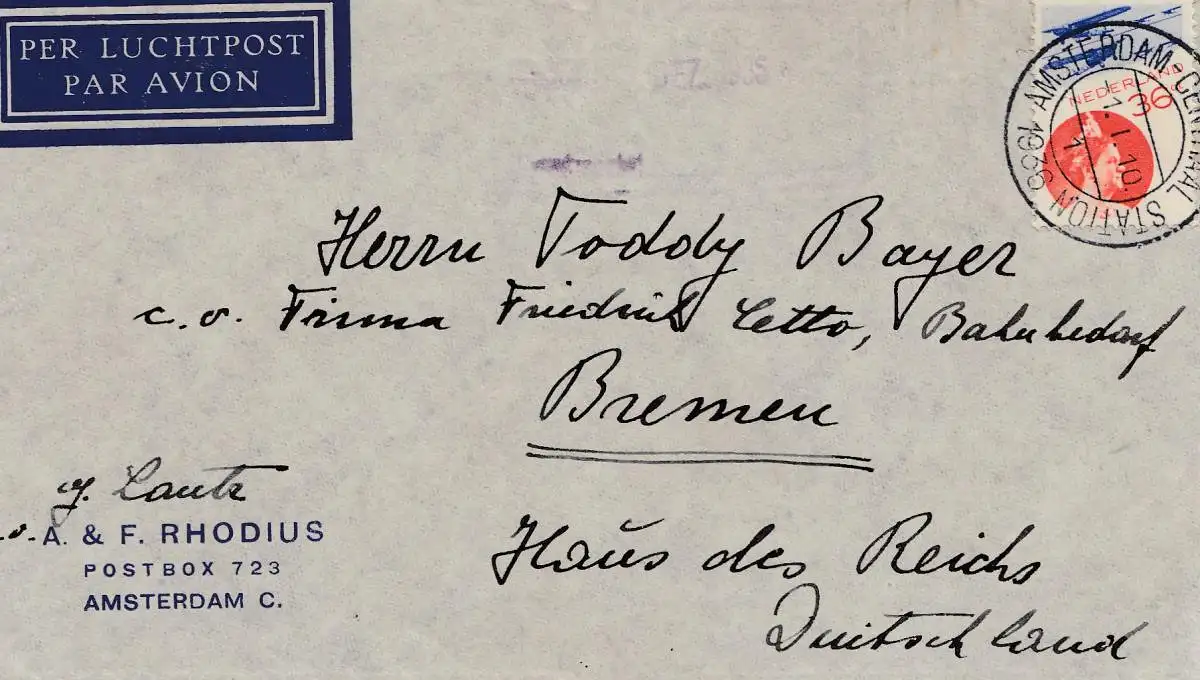 PER LUCHTPOST
PAR AVION
NEDERLAND
36 c
AMSTERDAM-CENTRAAL STATION
1.I.10.
1936
Herrn Toddy Bayer
c.o. Firma Friedrich Cetto, Bahnbedarf
Bremen
J. Lautz
c.o. A. & F. RHODIUS
POSTBOX 723
AMSTERDAM C.
Haus des Reichs
Duitschland